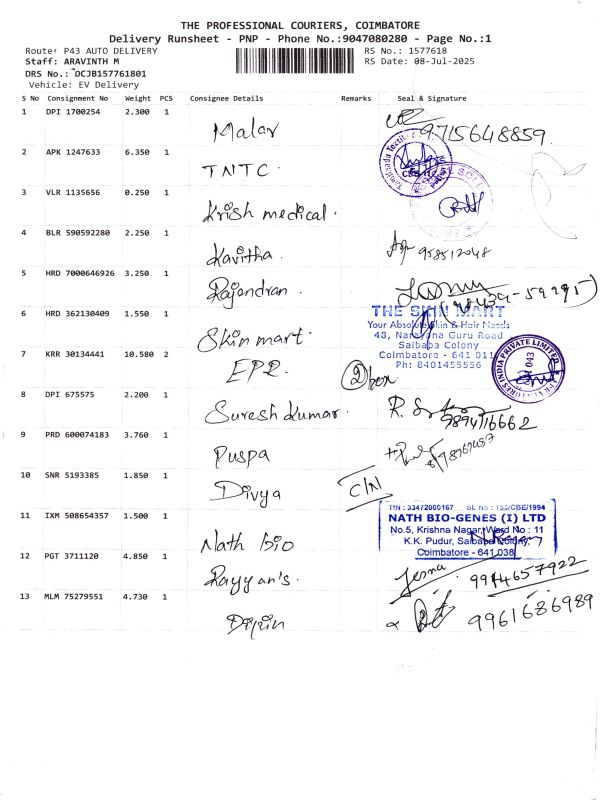 THE PROFESSIONAL COURIERS, COIMBATORE
Delivery Runsheet - PNP - Phone No.:9047080280 - Page No.:1
Route: P43 AUTO DELIVERY RS No.: 1577618
Staff: ARAVINTH M RS Date: 08-Jul-2025
DRS No.: DCJB157761801
Vehicle: EV Delivery
S No Consignment No Weight PCS Consignee Details Remarks Seal & Signature
1 DPI 1700254 2.300 1 Malar 9715648859
2 APK 1247633 6.350 1 TNTC
3 VLR 1135656 0.250 1 Krish medical
4 BLR 590592280 2.250 1 Kavitha
5 HRD 7000646926 3.250 1 Rajendran
6 HRD 362130409 1.550 1 Skin mart
THE SKIN MART
Your Absolute Skin & Hair Needs
48, Narayana Guru Road
Saibaba Colony
Coimbatore - 641 011
Ph: 8401455556
7 KRR 30134441 10.580 2 EPR 2 box
8 DPI 675575 2.200 1 Suresh Kumar 9894716662
9 PRD 600074183 3.760 1 Puspa
10 SNR 5193385 1.850 1 Divya C/N
11 IXM 508654357 1.500 1 Nath Bio
TIN : 33472000167 SL No : 155/CBE/1994
NATH BIO-GENES (I) LTD
No.5, Krishna Nagar, Ward No : 11
K.K. Pudur, Saibaba Colony,
Coimbatore - 641 038
12 PGT 3711120 4.850 1 Rayyan's 9944657922
13 MLM 75279551 4.730 1 9961686989